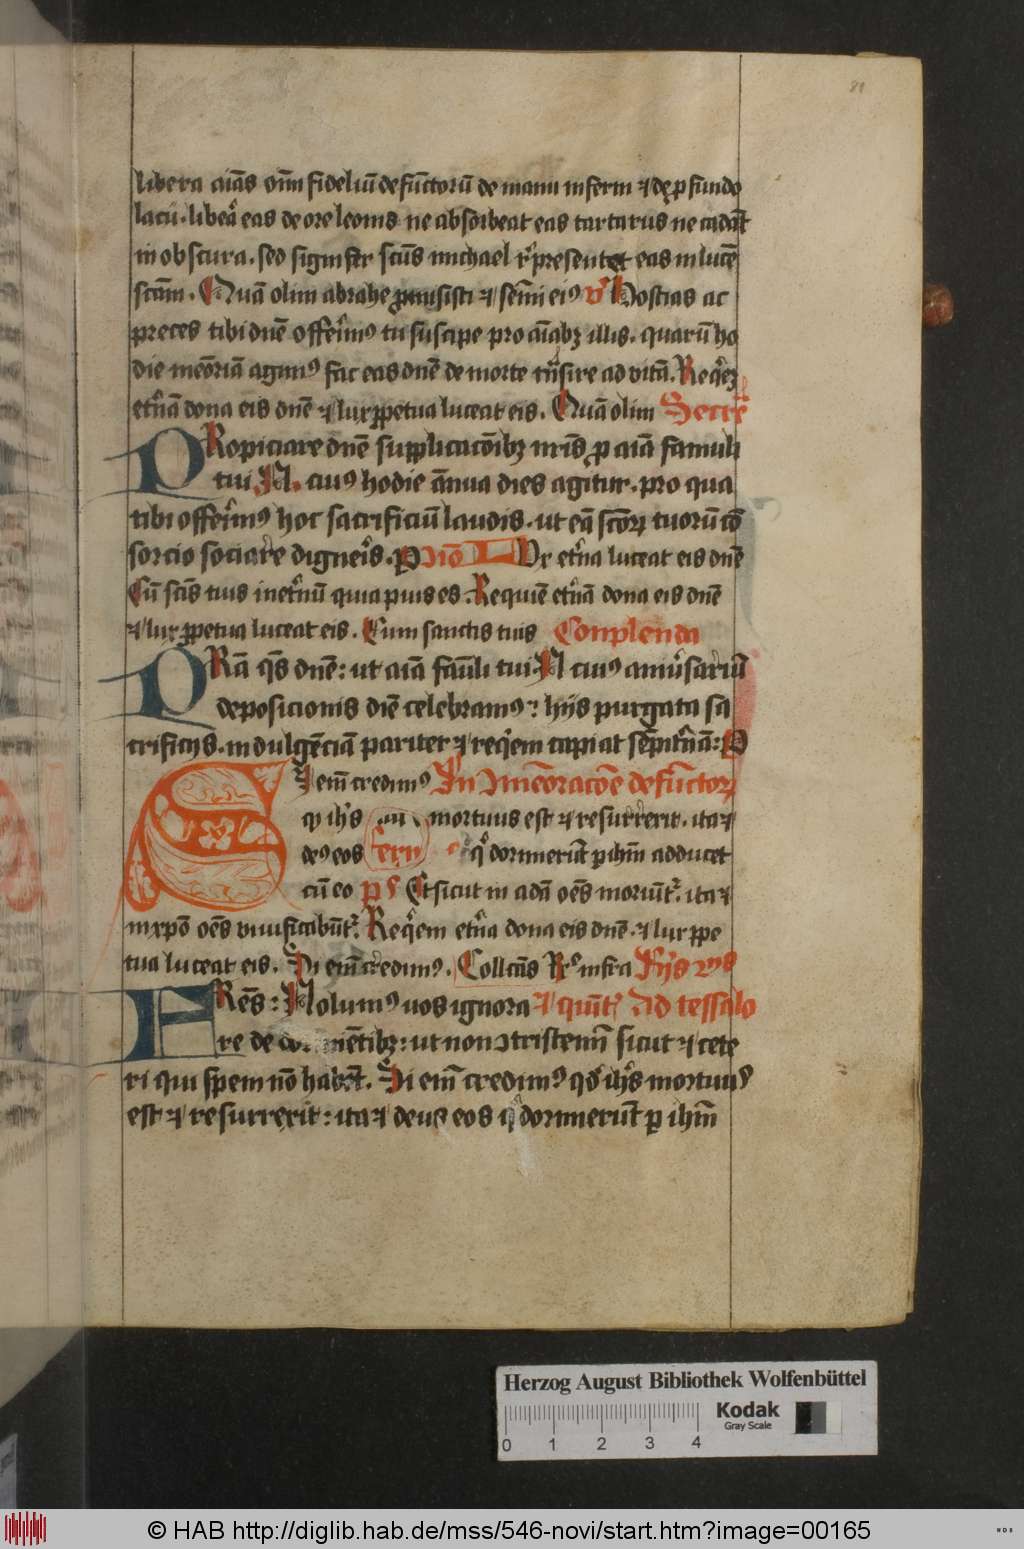 81
libera aīās om̄ fideliū defūctorū de manu inferni ⁊ de ꝓfundo
lacu. libeᵃ eas de ore leonis ne absorbeat eas tartarus ne cadāt
in obscura. sed signifer scūs michael rͥpresentet eas in lucē
scām. Quā olim abrahe ꝓmisisti ⁊ semī eiꝰ vͬ Hostias ac
preces tibi dnē offerimꝰ tu suscipe pro aīabꝫ illis. quarū ho
die meōriā agimꝰ fac eas dnē de morte tᷓnsire ad vitā. Reqͥeꝫ
etͬnā dona eis dnē ⁊ lux ꝑpetua luceat eis. Quā olim Secreͭ
PRopiciare dnē supplicacōibꝫ nrīs ꝓ aīā famuli
tui N. cuiꝰ hodie ānua dies agitur. pro qua
tibi offerimꝰ hoc sacrificiū laudis. ut eā scōꝝ tuorū cō
sorcio sociare digneris. ꝑ Cōio LUx etͬna luceat eis dnē
Cū scīs tuis in etͬnū quia pius es. Requiē etͬnā dona eis dnē
⁊ lux ꝑpetua luceat eis. Cum sanctis tuis Conplenda
PRā qͦs dnē: ut aīā famli tui N cuiꝰ aniūsariū
deposicionis diē celebramꝰ: hijs purgata sa
crificijs. indulgēciā pariter ⁊ reqͥem capiat sempitͬnā: P
Si em̄ credimꝰ In Cmeōracōe defūctoꝝ
qͥ ihs mortuus est ⁊ resurrexit. ita ⁊
deꝰ eos qͥ dormierūt ꝑ ihm̄ adducet
cū eo ps Et sicut in adā oēs moriūtͬ. ita ⁊
in xpō oēs viuificabūtͬ. Reqͥem etͬna dona eis dnē. ⁊ lux ꝑpe
tua luceat eis. Si em̄ credimꝰ. Collcās infra
FRēs: Nolumꝰ uos ignora Ad tessalo
re de dormiētibꝫ: ut non ɔtristemī sicut ⁊ cete
ri qui spem nō habēt. Si em̄ credimꝰ qͦd ihs mortuuꝰ
est ⁊ resurrexit: ita ⁊ deus eos qͥ dormierūt ꝑ ihm̄
Herzog August Bibliothek Wolfenbüttel
0 1 2 3 4
Kodak
Gray Scale
© HAB http://diglib.hab.de/mss/546-novi/start.htm?image=00165